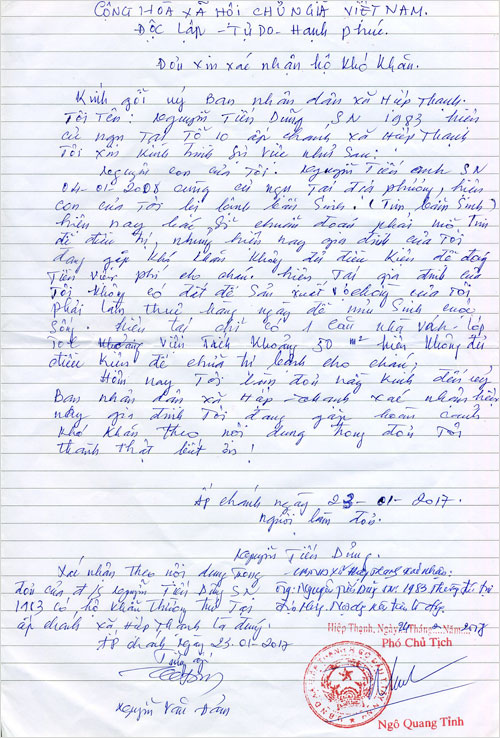 CỘNG HÒA XÃ HỘI CHỦ NGHĨA VIỆT NAM.
Độc Lập - Tự Do - Hạnh phúc.
Đơn xin xác nhận hộ khó khăn.
Kính gởi uỷ Ban nhân dân xã Hiệp Thạnh.
Tôi Tên: Nguyễn Tiến Dũng SN 1983 hiện
cư ngụ Tại Tổ 10 ấp chánh xã Hiệp Thạnh
Tôi xin Kính trình Sự việc như Sau:
Nguyên con của Tôi. Nguyễn Tiến anh SN
04-01-2008 cùng cư ngụ Tại địa phương, hiện
con của Tôi bị bệnh bẩm Sinh. (Tim bẩm Sinh)
hiện nay bác Sĩ chuẩn đoán phải mổ Tim
để điều trị, nhưng hiện nay gia đình của Tôi
đang gặp khó khăn không đủ điều Kiện để đóng
Tiền viện phí cho cháu. hiện Tại gia đình của
Tôi không có đất để Sản xuất của Tôi
phải làm thuê hàng ngày để mưu Sinh cuộc
Sống. Hiện tại chỉ có 1 căn nhà vách lợp
Tole diện Tích Khoảng 50 m² hiện không đủ
điều Kiện để chữa trị bệnh cho cháu,
Hôm nay Tôi làm đơn này Kính đến uỷ
Ban nhân dân xã Hiệp Thạnh xác nhận hiện
nay gia đình Tôi đang gặp hoàn cảnh
khó khăn theo nội dung trong đơn Tôi
thành Thật biết ơn!
Ấp chánh ngày 23-01-2017.
người làm đơn.
Nguyễn Tiến Dũng.
Xác nhận theo nội dung trong
đơn của Nguyễn Tiến Dũng SN
1983 có hộ khẩu Thường Trú Tại
ấp chánh xã Hiệp Thạnh là đúng.
Ấp chánh ngày 23-01-2017
Trưởng ấp
Nguyễn Văn Đảm
UBND xã Hiệp Thạnh xác nhận:
ông: Nguyễn Tiến Dũng sn: 1983 Thường trú tại
Hiệp Thạnh, Ngày 24 Tháng Năm 2017
Phó Chủ Tịch
Ngô Quang Tính